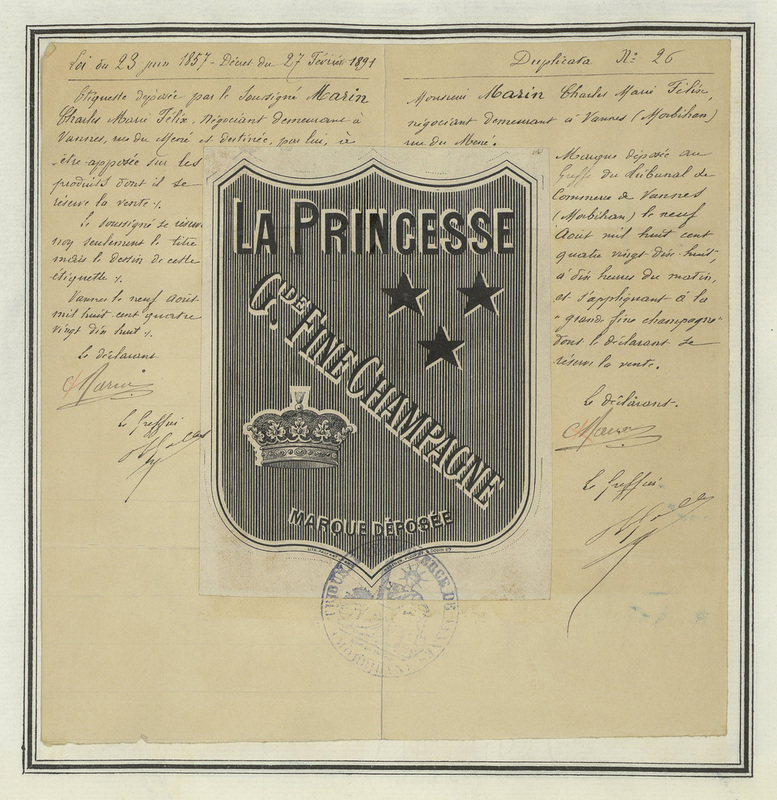 Loi du 23 juin 1857 - Décret du 27 Février 1891
Etiquette déposée par le Soussigné Marin
Charles Marie Félix, négociant demeurant à
Vannes, rue du Mené et destinée, par lui, à
être apposée sur les
produits dont il se
réserve la vente ./.
Le soussigné se réserve
non seulement le titre
mais le dessin de cette
étiquette ./.
Vannes le neuf Août
mil huit cent quatre
vingt dix huit ./.
Le déclarant
CMarin
Le Greffier
Duplicata No 26
Monsieur Marin Charles Marie Félix,
négociant demeurant à Vannes (Morbihan)
rue du Mené.
Marque déposée au
Greffe du Tribunal de
Commerce de Vannes
(Morbihan) le neuf
Août mil huit cent
quatre vingt-dix-huit,
à dix heures du matin,
et s'appliquant à la
"grande fine champagne"
dont le déclarant se
réserve la vente.
Le déclarant.
CMarin
Le Greffier
LA PRINCESSE
Gde. FINE CHAMPAGNE
MARQUE DÉPOSÉE
TRIBUNAL DE COMMERCE DE VANNES
(MORBIHAN)